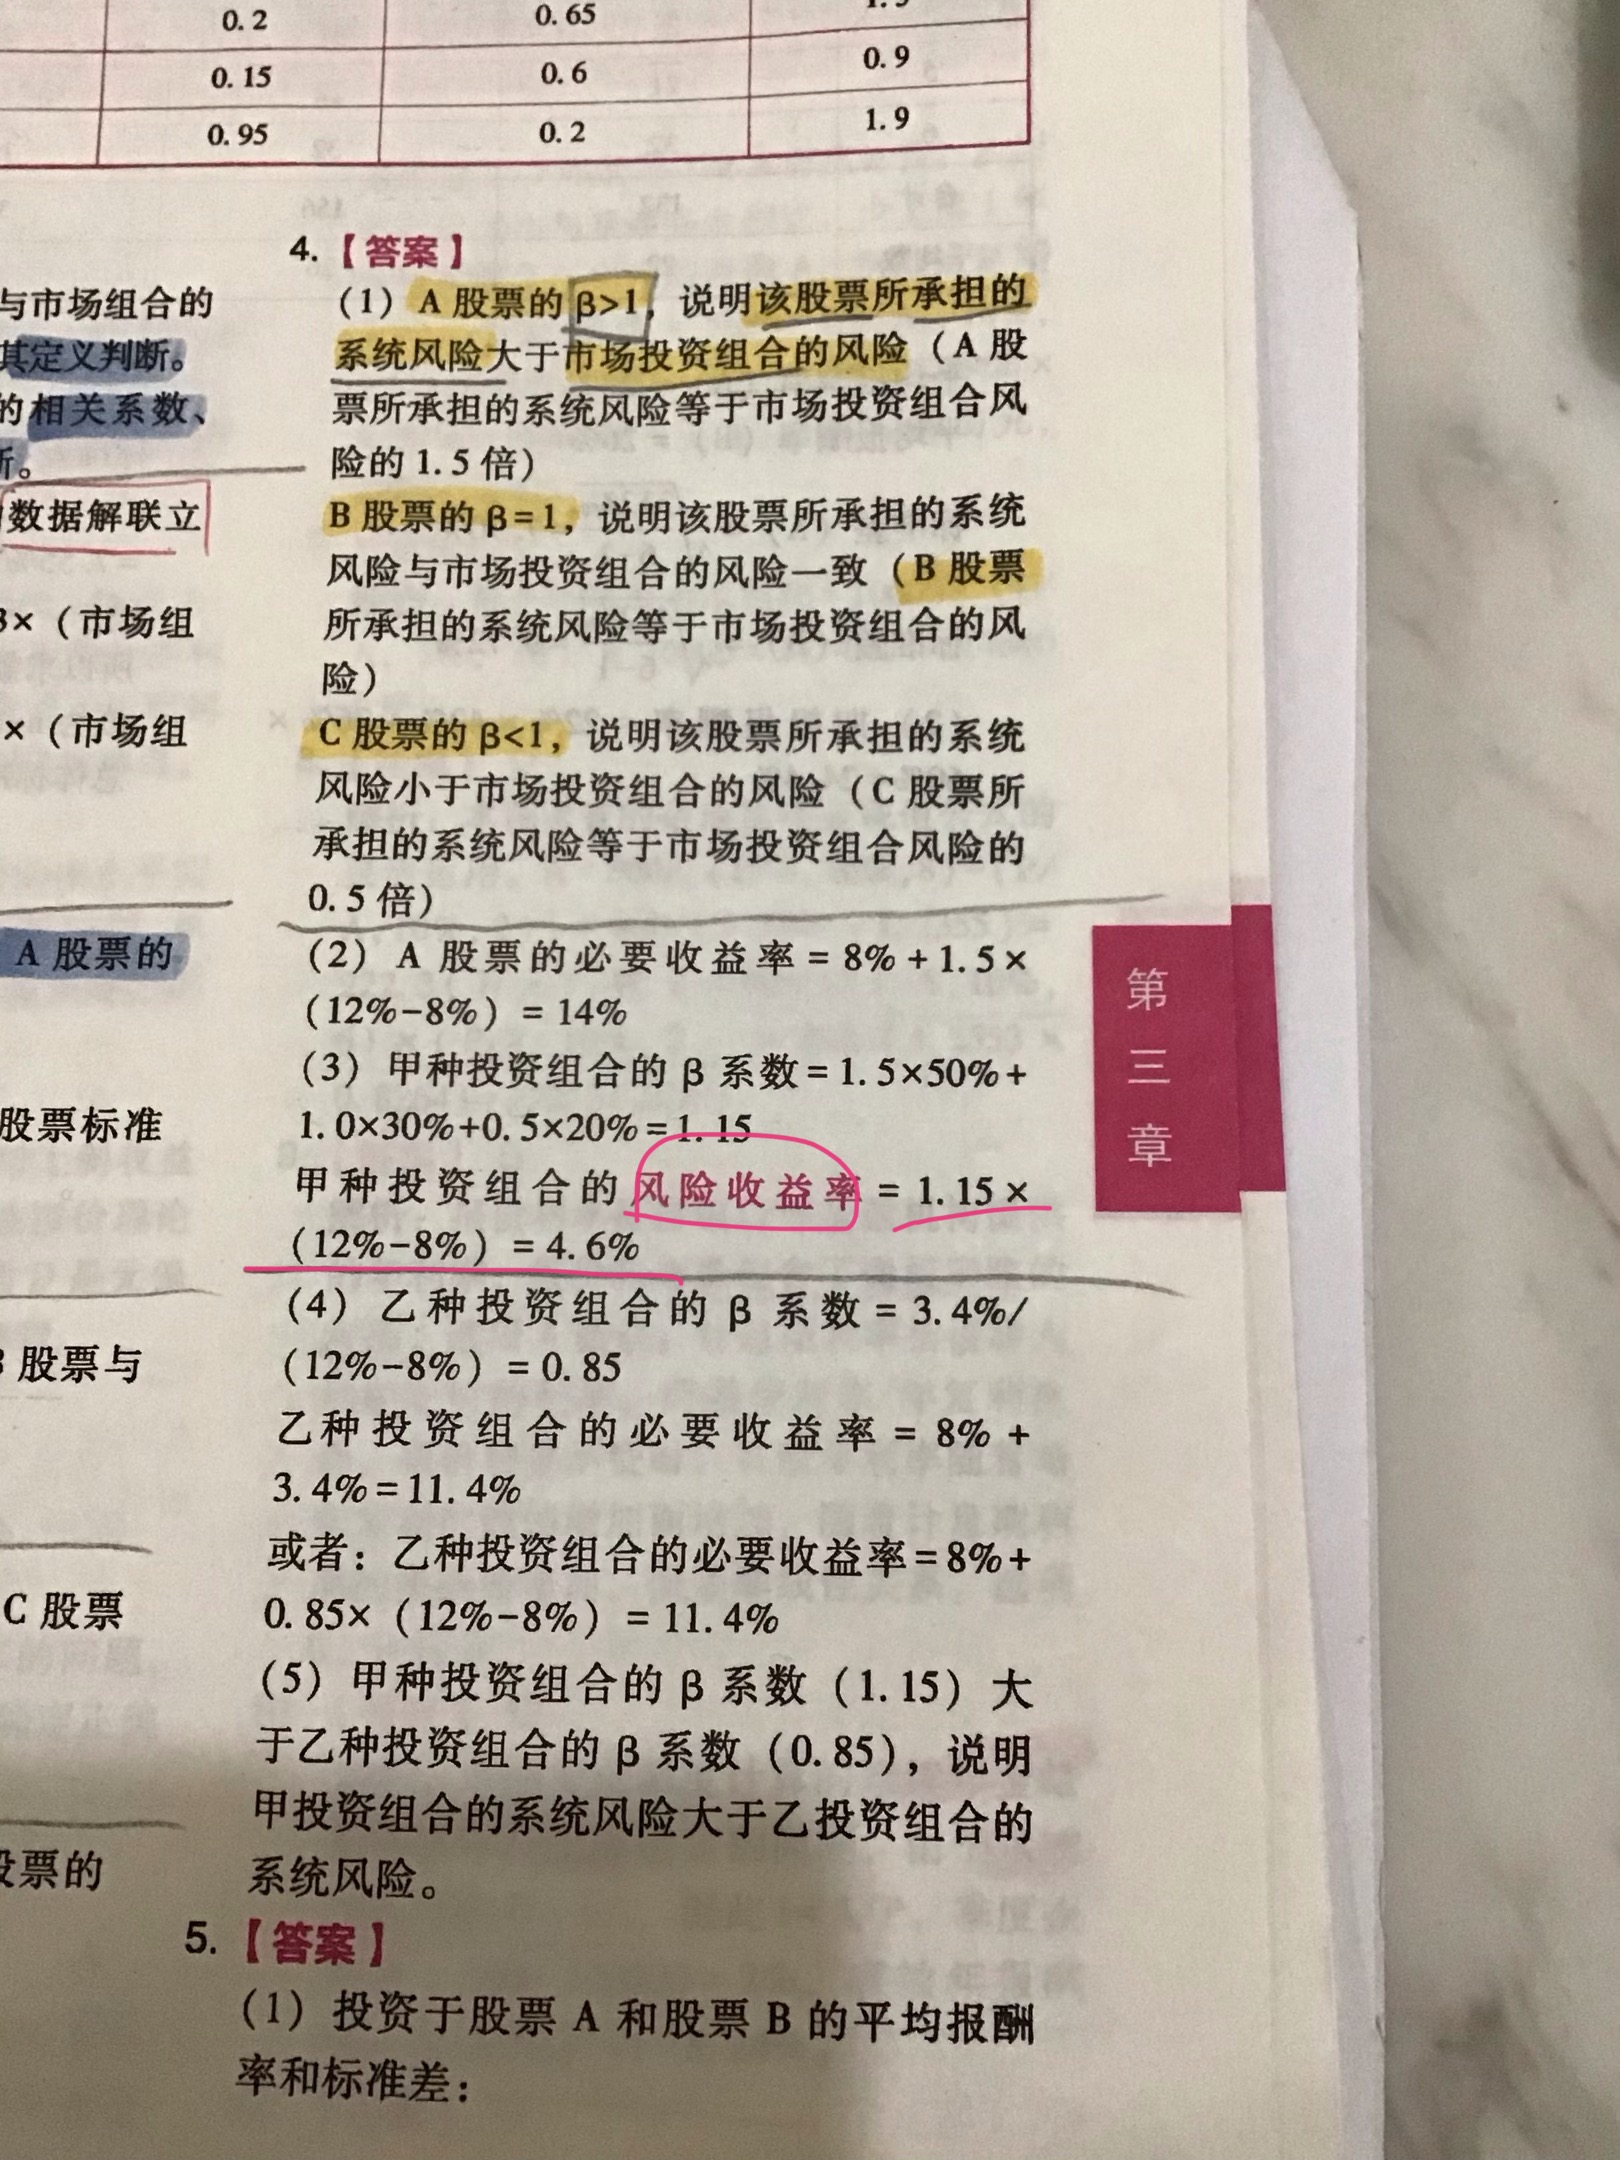 0.2 0.65
0.15 0.6 0.9
0.95 0.2 1.9
与市场组合的
其定义判断。
的相关系数、
断。
数据解联立
×（市场组
×（市场组
A 股票的
股票标准
股票与
C 股票
票的
4.【答案】
（1）A 股票的 β>1，说明该股票所承担的
系统风险大于市场投资组合的风险（A 股
票所承担的系统风险等于市场投资组合风
险的 1.5 倍）
B 股票的 β=1，说明该股票所承担的系统
风险与市场投资组合的风险一致（B 股票
所承担的系统风险等于市场投资组合的风
险）
C 股票的 β<1，说明该股票所承担的系统
风险小于市场投资组合的风险（C 股票所
承担的系统风险等于市场投资组合风险的
0.5 倍）
（2）A 股票的必要收益率=8%+1.5×
（12%-8%）=14%
（3）甲种投资组合的 β 系数=1.5×50%+
1.0×30%+0.5×20%=1.15
甲种投资组合的风险收益率=1.15×
（12%-8%）=4.6%
（4）乙种投资组合的 β 系数=3.4%/
（12%-8%）=0.85
乙种投资组合的必要收益率=8%+
3.4%=11.4%
或者：乙种投资组合的必要收益率=8%+
0.85×（12%-8%）=11.4%
（5）甲种投资组合的 β 系数（1.15）大
于乙种投资组合的 β 系数（0.85），说明
甲投资组合的系统风险大于乙投资组合的
系统风险。
5.【答案】
（1）投资于股票 A 和股票 B 的平均报酬
率和标准差：
第
三
章